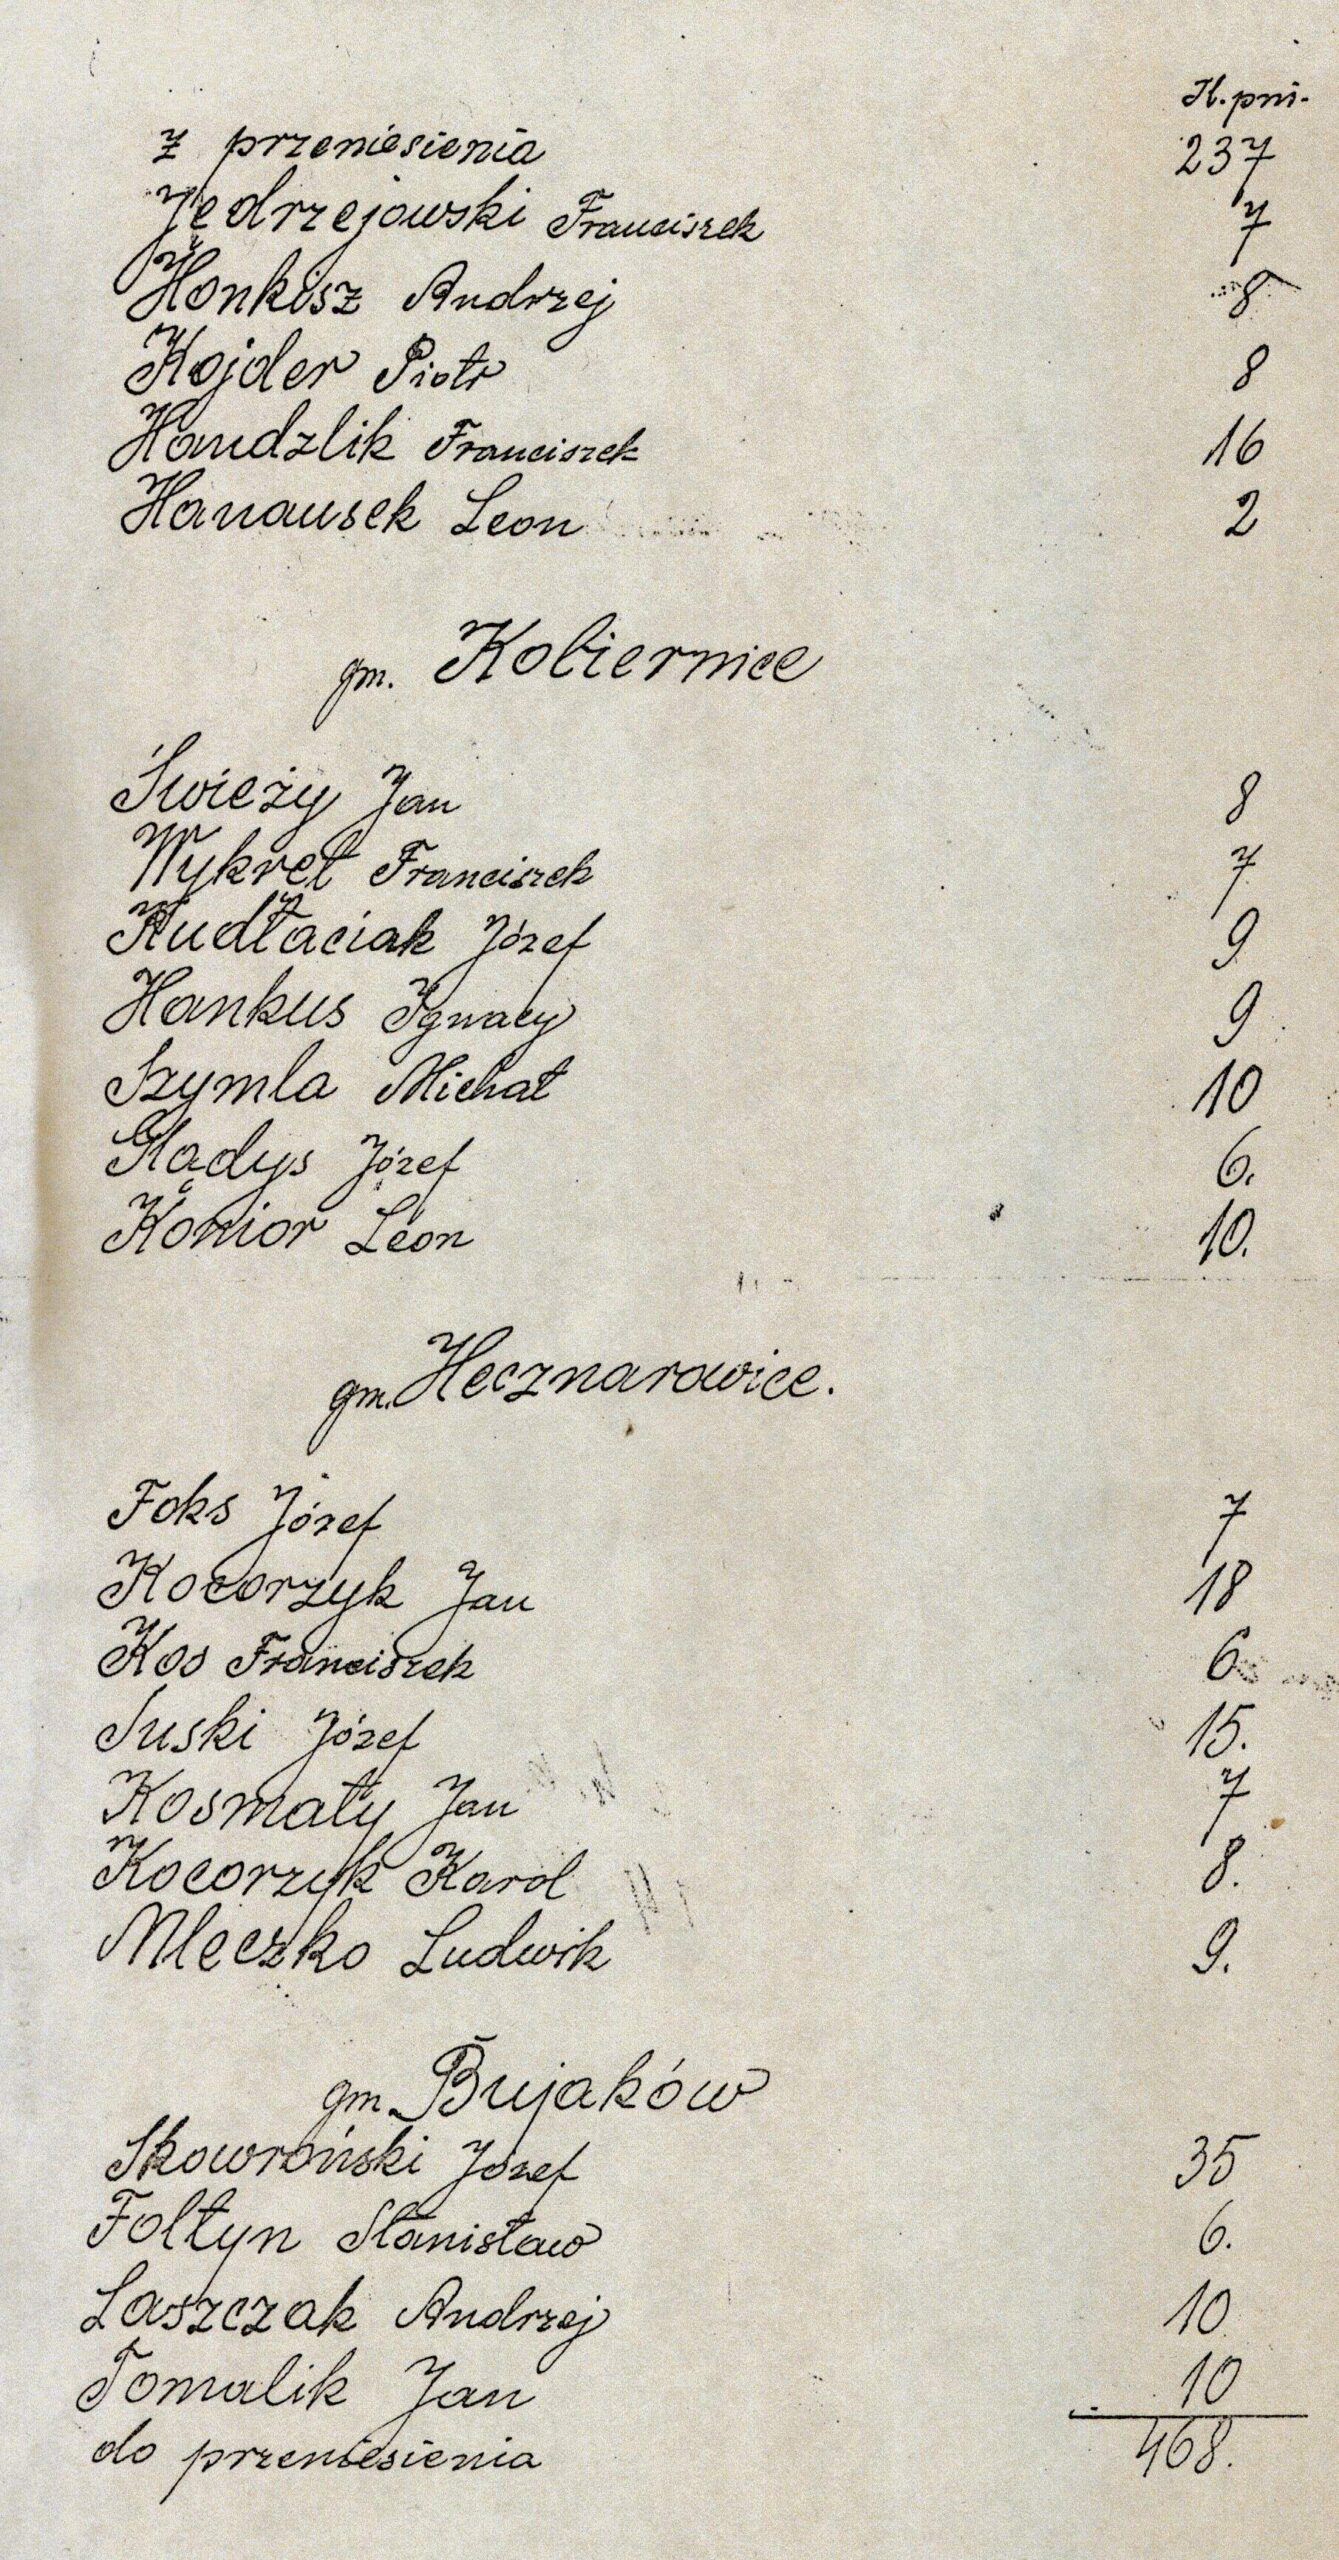 Il. pni.
z przeniesienia 237
Jędrzejowski Franciszek 7
Honkisz Andrzej 8
Kojder Piotr 8
Handzlik Franciszek 16
Hanausek Leon 2
gm. Kobiernice
Świeży Jan 8
Wykręt Franciszek 7
Kudłaciak Józef 9
Hankus Ignacy 9
Szymla Michał 10
Gładys Józef 6.
Konior Leon 10.
gm. Hecznarowice.
Foks Józef 7
Kocorzyk Jan 18
Kos Franciszek 6
Suski Józef 15.
Kosmaty Jan 7
Kocorzyk Karol 8.
Mleczko Ludwik 9.
gm. Bujaków
Skowroński Józef 35
Foltyn Stanisław 6.
Laszczak Andrzej 10
Tomalik Jan 10
do przeniesienia 468.